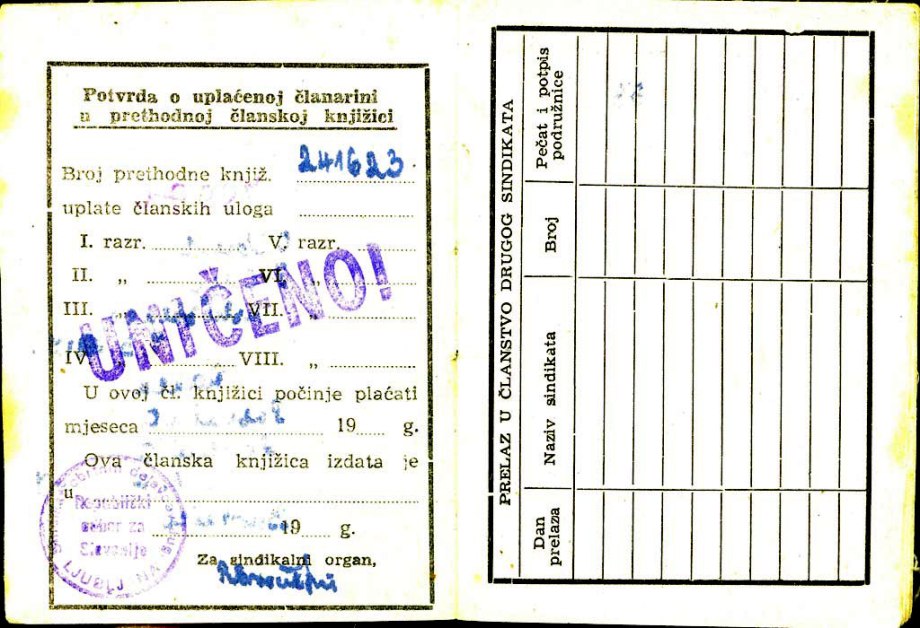 Potvrda o uplaćenoj članarini
u prethodnoj članskoj knjižici
Broj prethodne knjiž. 241623
uplate članskih uloga
I. razr. V. razr.
II. „ VI. „
III. „ VII. „
IV „ VIII. „
UNIČENO!
U ovoj čl. knjižici počinje plaćati
mjeseca 19 g.
Ova članska knjižica izdata je
u
19 g.
Za sindikalni organ,
PRELAZ U ČLANSTVO DRUGOG SINDIKATA
Dan prelaza
Naziv sindikata
Broj
Pečat i potpis
podružnice